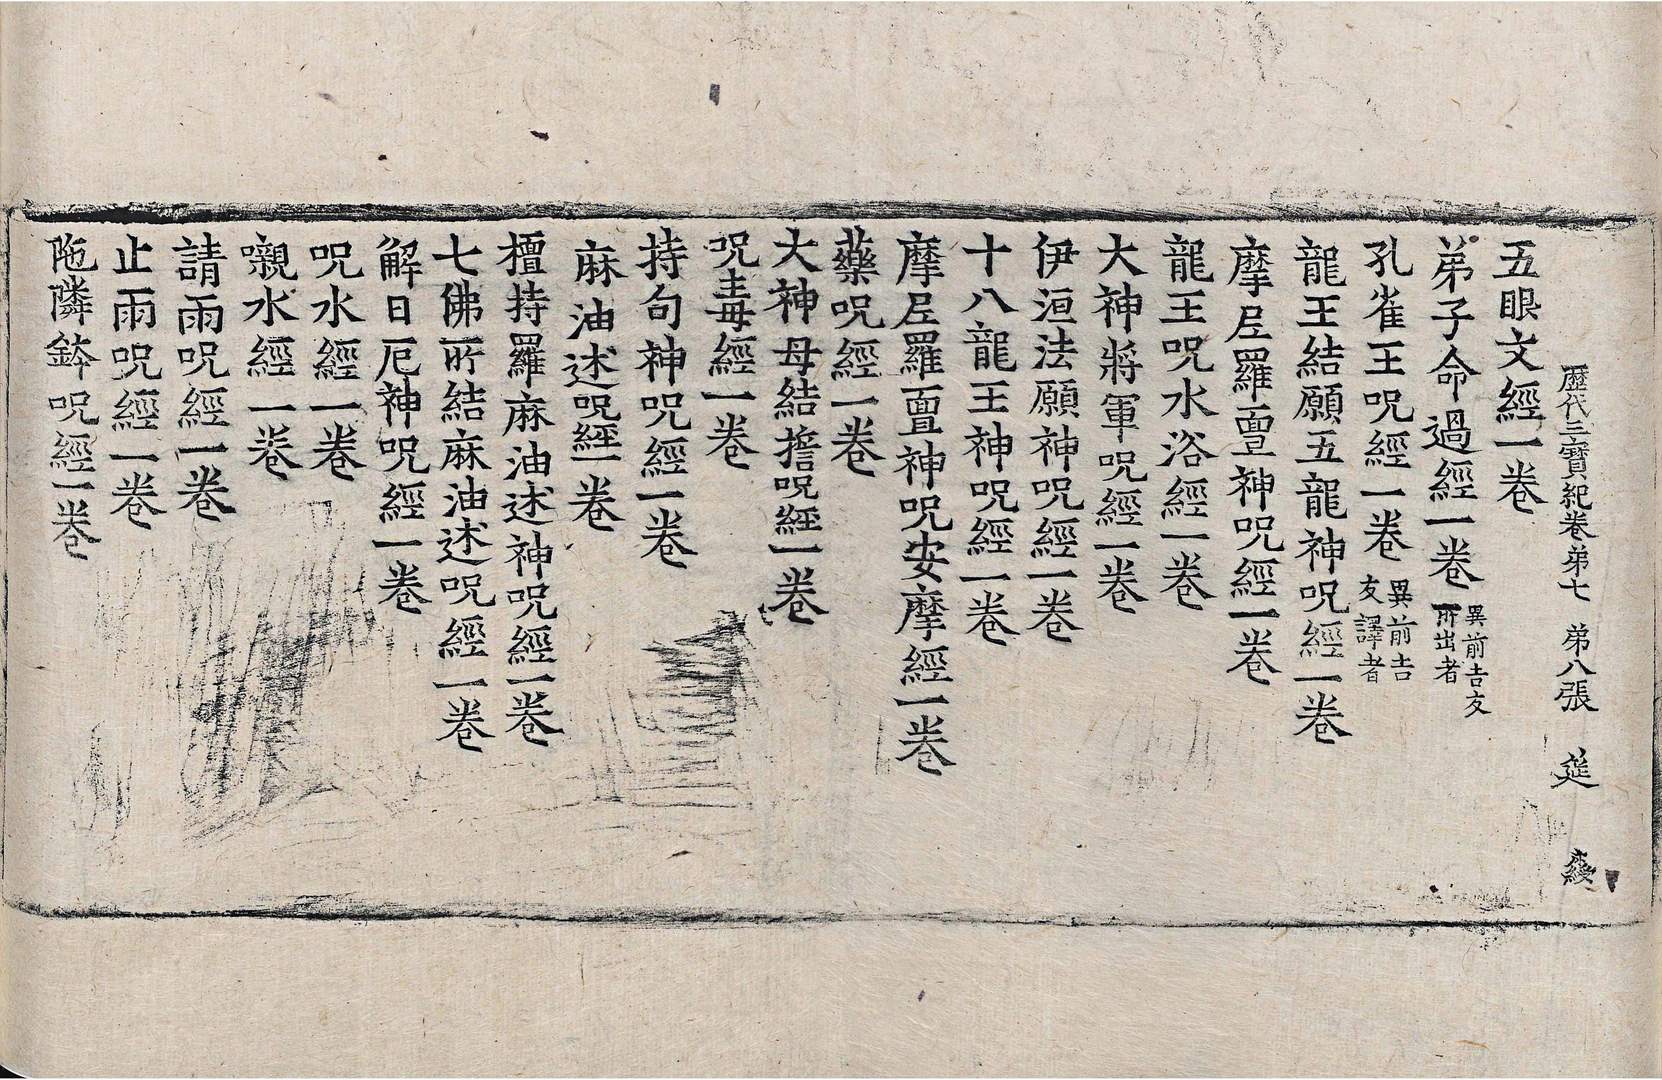 歷代三寶紀卷苐七 苐八張 莚 綬
五眼文經一卷
苐子命過經一卷 異前吉友所出者
孔雀王呪經一卷 異前吉友譯者
龍王結願五龍神呪經一卷
摩尼羅亶神呪經一卷
龍王呪水浴經一卷
大神將軍呪經一卷
伊洹法願神呪經一卷
十八龍王神呪經一卷
摩尼羅亶神呪安摩經一卷
藥呪經一卷
大神母結擔呪經一卷
呪毒經一卷
持句神呪經一卷
麻油述呪經一卷
檀持羅麻油述神呪經一卷
七佛所結麻油述呪經一卷
解日厄神呪經一卷
呪水經一卷
嚫水經一卷
請雨呪經一卷
止雨呪經一卷
陁隣鉢呪經一卷